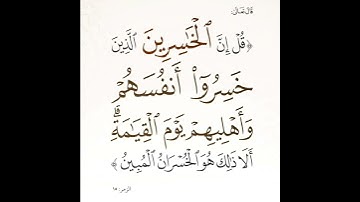 قال تعالى:
﴿قُلْ إِنَّ ٱلْخَٰسِرِينَ الَّذِينَ
خَسِرُوٓا۟ أَنفُسَهُمْ
وَأَهْلِيهِمْ يَوْمَ ٱلْقِيَٰمَةِۗ
أَلَا ذَٰلِكَ هُوَ ٱلْخُسْرَانُ ٱلْمُبِينُ﴾
الزمر: ١٥